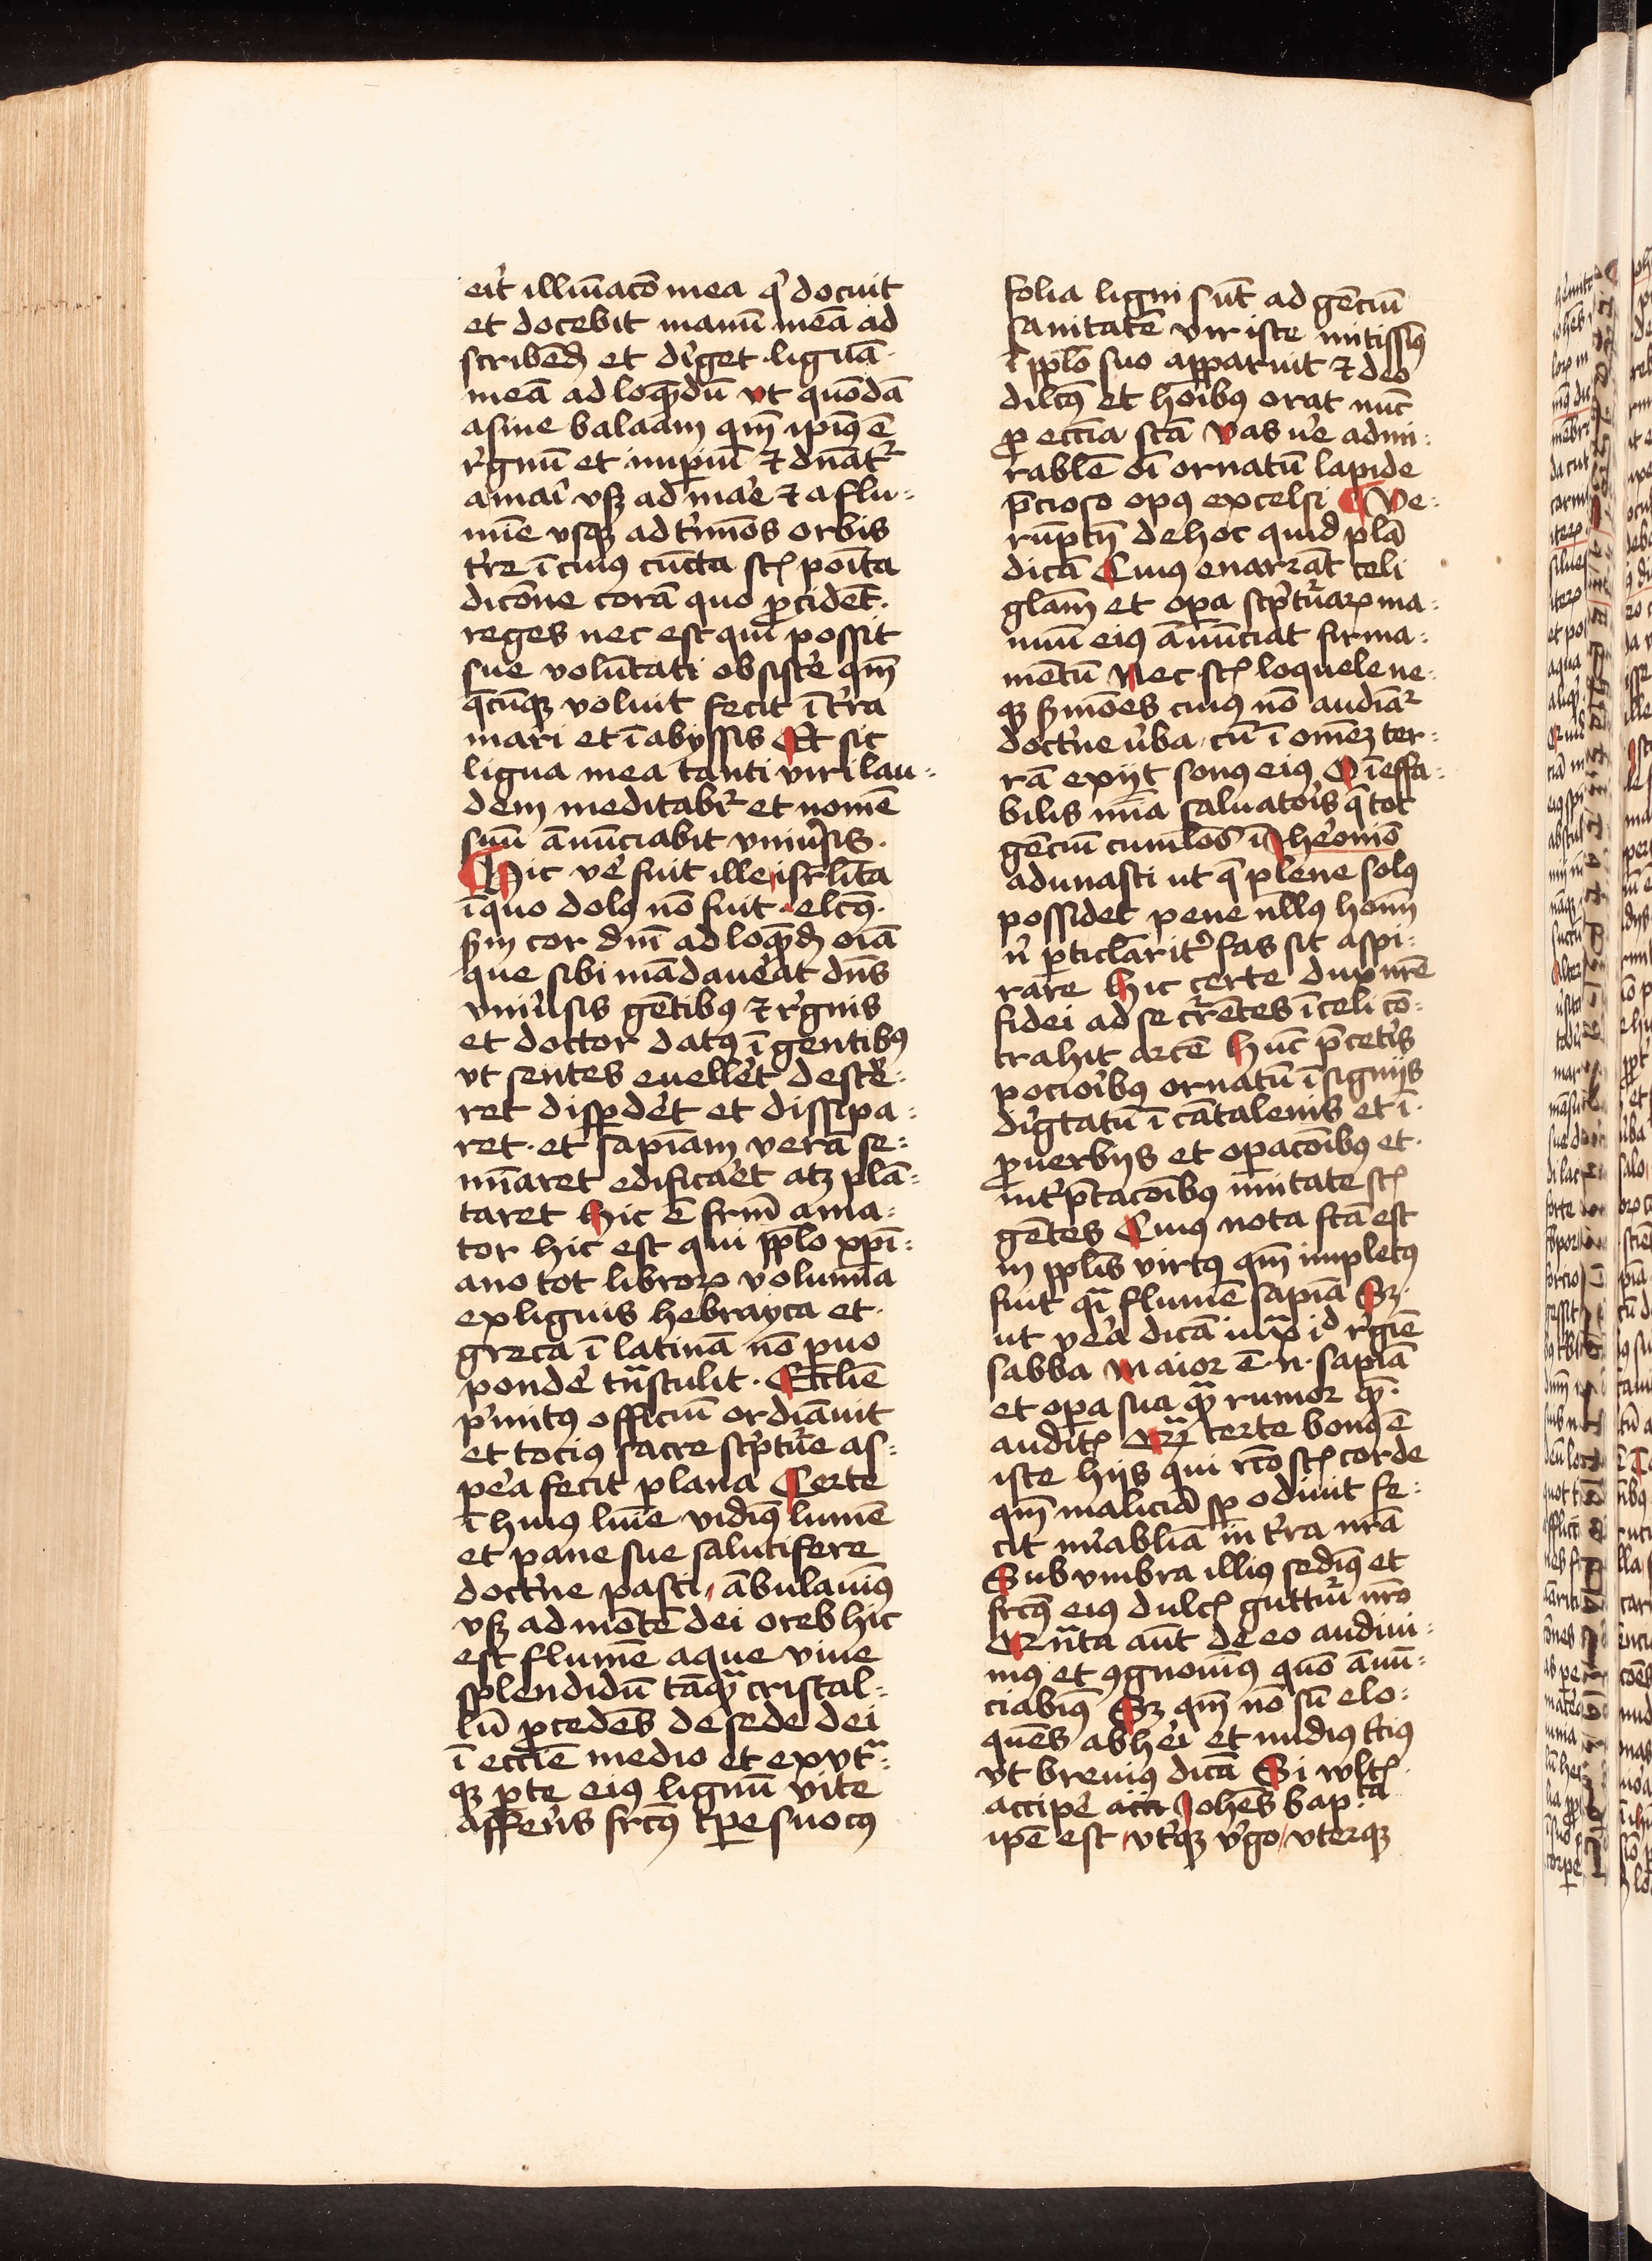 eit̉ illiu̅aco̅ mea q̉ docuit
et docebit manu̅ mea̅ ad
scribe̅d̉ et di̓get ligua̅
mea̅ ad loq̅ndu̅ vt quo̅da̅
asine balaam qm̅ ip̅ius e̅
r̓gnu̅ et imp̲iu̅ ⁊ dn̅at᷑
a mai̓ vsqꝫ ad ma̓e ⁊ a flu⸗
mi̅e vsqꝫ ad t̓mi̅os orbis
t̓re i̅ cuius cu̅cta st̅ poi̅ta
dico̅ne cora̅ quo p̲cide̅t.
reges nec est qui̅ possit
sue volu̅tati obsist̓e qm̅
q̅cu̅qꝫ voluit fecit i̅ t̓ra
mari et i̅ abyssis Et sic
ligua mea tanti viri lau⸗
dem meditabi᷑ et nome̅
suu̅ a̅nu̅ciabit vniu̓sis.
Hic ve̓ fuit ille isrl̅ita
i̅ quo dolꝰ no̅ fuit elc̅ꝰ.
sm̅ cor dni̅ ad loq̅nd̉ oi̅a
que sibi ma̅dau̓eat dn̅s
vniu̓sis ge̅tibꝰ ⁊ r̓gnis
et doctor datꝰ i̅ gentibꝰ
vt sentes euell̓et dest̓e⸗
ret disp̲d̓et et dissipa⸗
ret. et sapia̅m vera̅ se⸗
mi̅aret edifica̓et atqꝫ pla̅⸗
taret Hic e̅ frm̅ ama⸗
tor hic est qui pp̅lo xp̅i⸗
ano tot libroꝝ volumi̅a
ex liguis hebrayca et.
greca i̅ latina̅ no̅ p̲uo
pond̓e tn̅stulit. Eccl̅ie
p̓mitꝰ officiu̅ ordi̅auit
et tocius sacre sc̓ptu̓e as⸗
pe̓a fecit plana Certe
i̅ huiꝰ lui̅e vidi̅ꝰ lume̅
et pane sue salutifere
doct̓ne pasti, a̅bulaui̅ꝰ
vsqꝫ ad mo̅te̅ dei oreb hic
est flume̅ aque viue
splendidu̅ ta̅qᷓ cristal⸗
lu̅ p̲cede̅s de sede dei
i̅ eccl̅ie medio et ex vt̅⸗
qꝫ p̲te eius lignu̅ vite
affer̓s frc̅ꝰ tp̲e suo cꝰ
folia ligni su̅t ad ge̅ciu̅
sanitate̅ vir iste mitissi̅ꝰ
i̅ pp̅lo suo apparuit ⁊ deo
dilc̅ꝰ et hoi̅bꝰ orat nu̅c
p̲ eccl̅ia sc̅a Vas v̓e admi⸗
rable̅ oi̅ ornatu̅ lapide
p̅cioso opꝰ excelsi Ve⸗
ru̅ptn̅ de hoc quid pla̅
dica̅ Cuius enarra̅t celi
gla̅m et opa̲ sc̓ptu̓aꝝ ma⸗
nuu̅ eius a̅nu̅ciat firma⸗
me̅tu̅ Nec st̅ loquele ne⸗
qꝫ s̓mo̅es cuius no̅ audia̅᷑
doct̓ne v̓ba cu̅ i̅ ome̅ꝫ ter⸗
ra̅ exijt sonꝰ eius O i̅effa⸗
bilis mi̅a saluato̓is q̅ tot
ge̅ciu̅ cumlo̅s i̅ Ih̓eonio̅
adunasti ut q̅ plene solꝰ
possidet pene nll̅ꝰ homi̅
n̓ p̲ticlarit̓ fas sit aspi⸗
rare Hic certe dux nr̅e
fidei ad se cr̓e̅tes i̅ celi co̅⸗
trahit arce̅ Hu̅c p̅ cet̓is
pocio̓ibꝰ ornatu̅ i̅signijs
di̓gtatu̅ i̅ ca̅talenis et i̅.
p̲uerbijs et opaco̅ibꝰ et.
int̓p̅taco̅ibꝰ mi̅tate st̅
ge̅tes Cuius nota fc̅a est
in pp̅lis virtꝰ qm̅ impletꝰ
fuit qi̅ flume̅ sapi̅a Sꝫ.
ut ve̓a dica̅ iux̅ id r̓gi̅e
sabba Maior e̅.n. sapi̅a
et opa sua qᷓ rumor que̅.
audit̅ Qᷓ certe bonꝰ e̅
iste hijs qui rc̅o st̅ corde
qm̅ malicia̅ sp̲ odiuit fe⸗
cit mi̓abi̅lia in t̓ra nr̅a
Sub vmbra illius sedi̅ꝰ et
frc̅ꝰ eius dulc̅ guttu̓i nr̅o
Qn̅ta au̅t de eo audiui⸗
mꝰ et ꝯgnoui̅ꝰ quo̅ a̅nu̅⸗
ciabi̅ꝰ Sꝫ qm̅ no̅ su̅ elo⸗
que̅s ab he̓i et nudiꝰ tc̓iꝰ
vt breuiꝰ dica̅ Si wlt̅
accip̓e Iohe̅s bap̅ta
ip̅e est vt̓qꝫ v̓go vterqꝫ